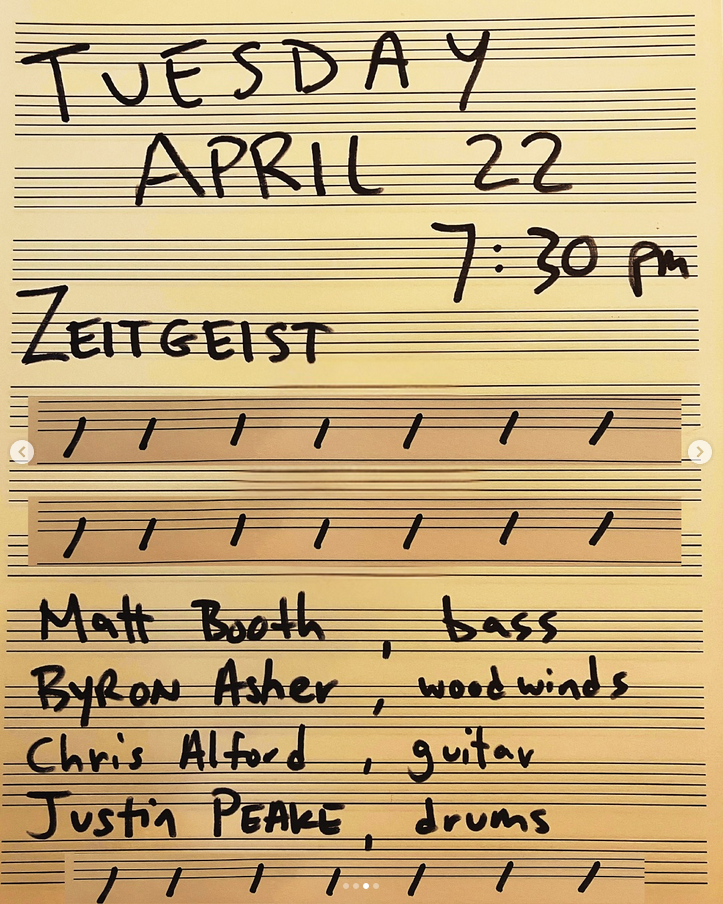 TUESDAY
APRIL 22
7:30 pm
ZEITGEIST
Matt Booth, bass
BYRON Asher, woodwinds
Chris Alford, guitar
Justin PEAKE, drums